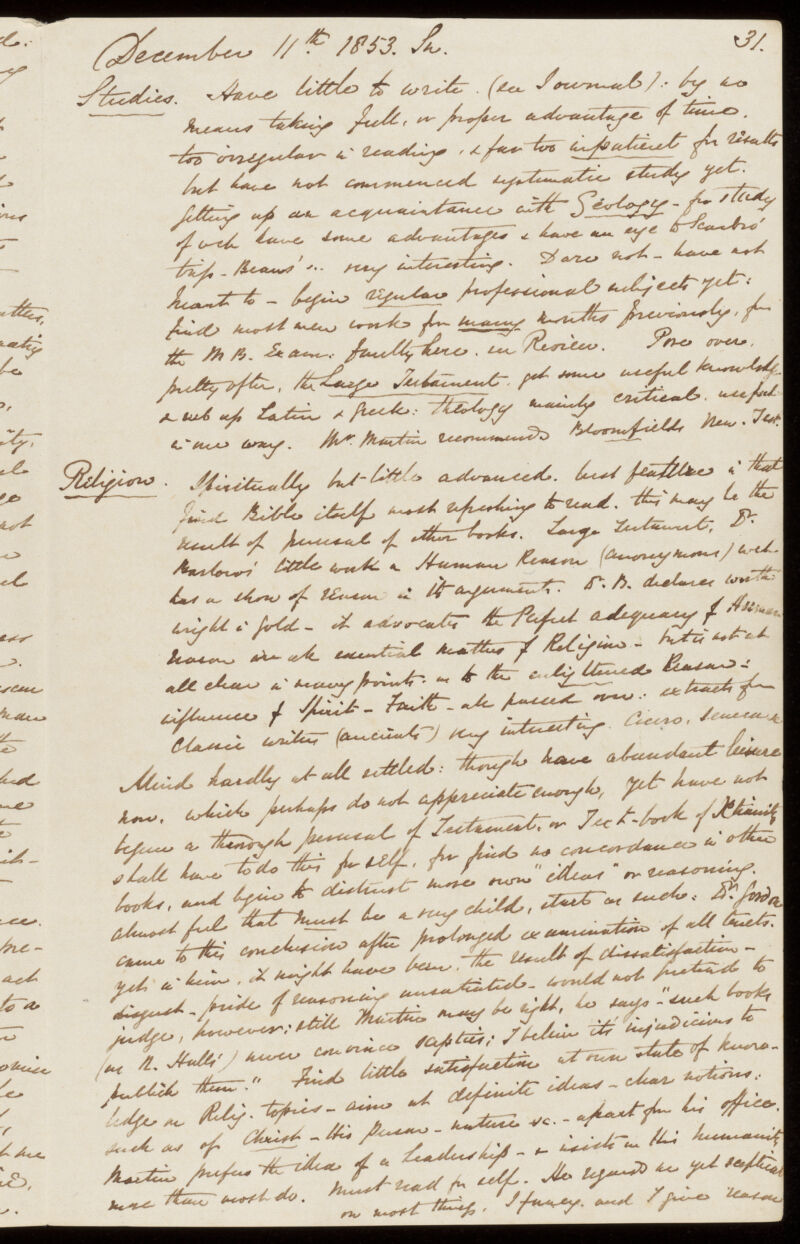 31.
December 11th 1853. Su.
Studies. Have little to write. (see Journal): by no
means taking full, or proper advantage of time.
too irregular in reading, & far too impatient for results
but have not commenced systematic study yet.
Getting up an acquaintance with Geology - for study
of wch have some advantages & have an eye to Scarbro'
trip - Beans' very interesting. Dare not - have not
meant to - begin regular professional subjects yet:
find most men work for many months previously, for
the M.B. Exam: faulty here. in Review. Pore over,
pretty often, the Large Testament. get some useful knowledge
& rub up Latin & Greek: theology mainly critical. useful
in one way. Mr. Martin recommends Bloomfields New. Test.
Religion. Spiritually but little advanced. best feature is that
find Bible itself most refreshing to read. this may be the
result of perusal of other books. Large Testament, Dr.
Barlow's little work on Human Reason (anonymous) wch.
has a show of reason in its arguments. Dr. B. declares worth
weight in Gold - it advocates the Perfect adequacy of Human
reason in all essential matters of Religion - but is not at
all clear in many points. as to the enlightened Reason:
influence of Spirit - Faith - all passed over: extracts from
Classic writers (ancients) very interesting. Cicero, Seneca &
Mind hardly at all settled: though have abundant leisure
now, which perhaps do not appreciate enough, yet have not
begun a thorough perusal of Testament, or Text-book of Xtianity
shall have to do this for self, for find no concordance in other
books, and begin to distrust more own "ideas" or reasoning.
almost feel that must be a very child, start as such: Dr. Gordon
came to this conclusion after prolonged examination of all tracts.
yet in him, it might have been, the result of dissatisfaction -
disgust - pride of reasoning unsatiated - would not pretend to
judge, however: still Martin may be right, he says - "such books
(as N. Hall's) never convince sceptics; I believe it's injudicious to
publish them." Find little satisfaction at own state of know-
ledge on Relig. topics - aim at definite ideas - clear notions:
such as of Christ - His person - nature &c. - apart from his office.
Martin prefers the idea of a Leadership - & insists on His humanity
more than most do. Must read for self. He regards me yet sceptical
on most things, I fancy, and I give reason